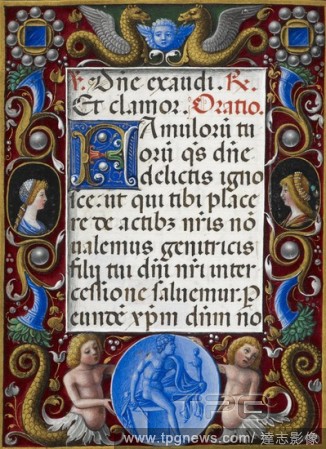 ℣. Dne exaudi. ℟.
Et clamor. Oratio.
Famulorū tu
orū qs dne
delictis igno
sce. ut qui tibi place
re de actibꝫ nr̄is nō
ualemus genitricis
filij tui dn̄i nr̄i inter
cessione saluemur. P
eundē xp̄m dn̄m no
TPG
www.tpgnews.com/達志影像